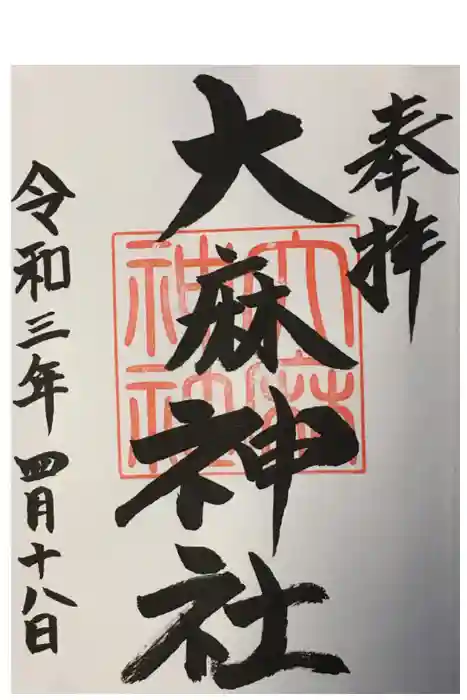 奉拝
大麻神社
大麻
神社
令和三年 四月十八日